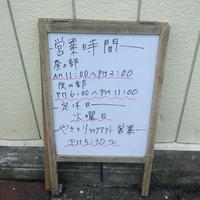 営業時間
昼の部
AM 11:00～PM 2:00
夜の部
PM 6:00～PM 11:00
定休日
火曜日
やきとりテイクアウト営業
PM 5:30～